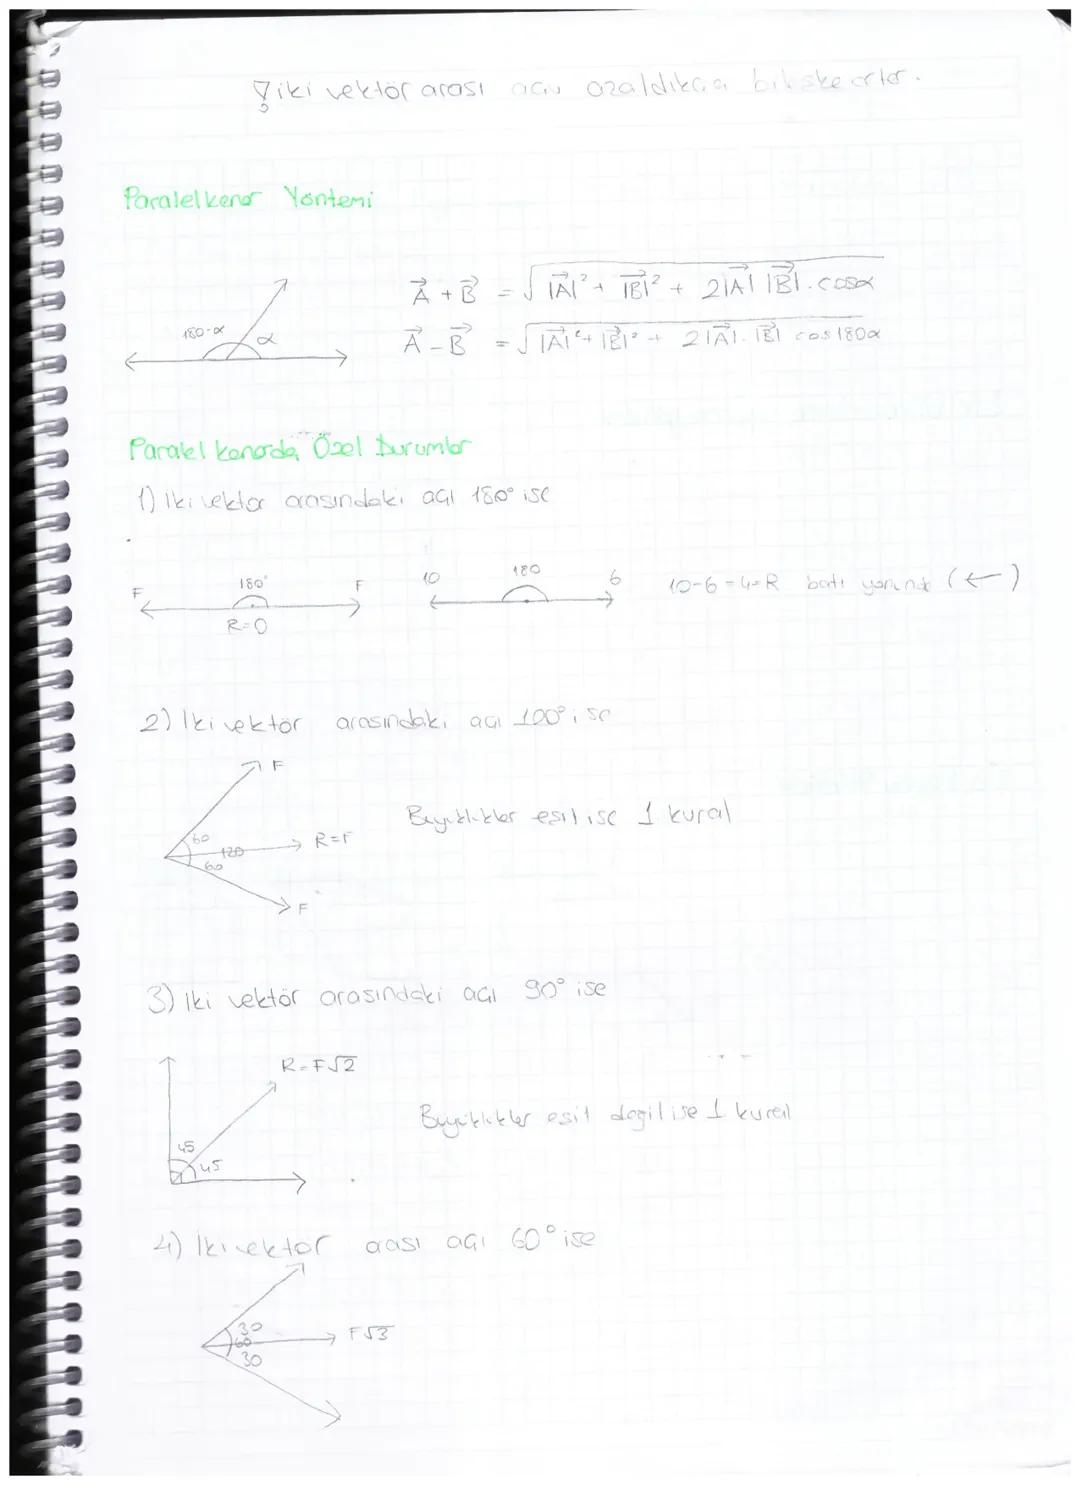 iki vektör arası açı azaldıkça bileşke artar.
Paralelkenar Yöntemi
180-α
α
A⃗ + B⃗ = √|A⃗|² + |B⃗|² + 2|A⃗| |B⃗|. cosα
A⃗ - B⃗ = √|A⃗|² + |B⃗|² + 2|A⃗|. |B⃗| cos180α
Paralel kenarda Özel Durumlar
1) İki vektör arasındaki açı 180° ise
F 180° F
R=0
10 180 6
10-6=4=R batı yönünde (←)
2) İki vektör arasındaki açı 100° ise
F
60
120
60
R=F
F
Büyüklükler eşit ise 1 kural
3) İki vektör arasındaki açı 90° ise
R=F√2
45
45
Büyüklükler eşit degil ise 1 kural
4) İki vektör arası açı 60° ise
30
60
30
F√3